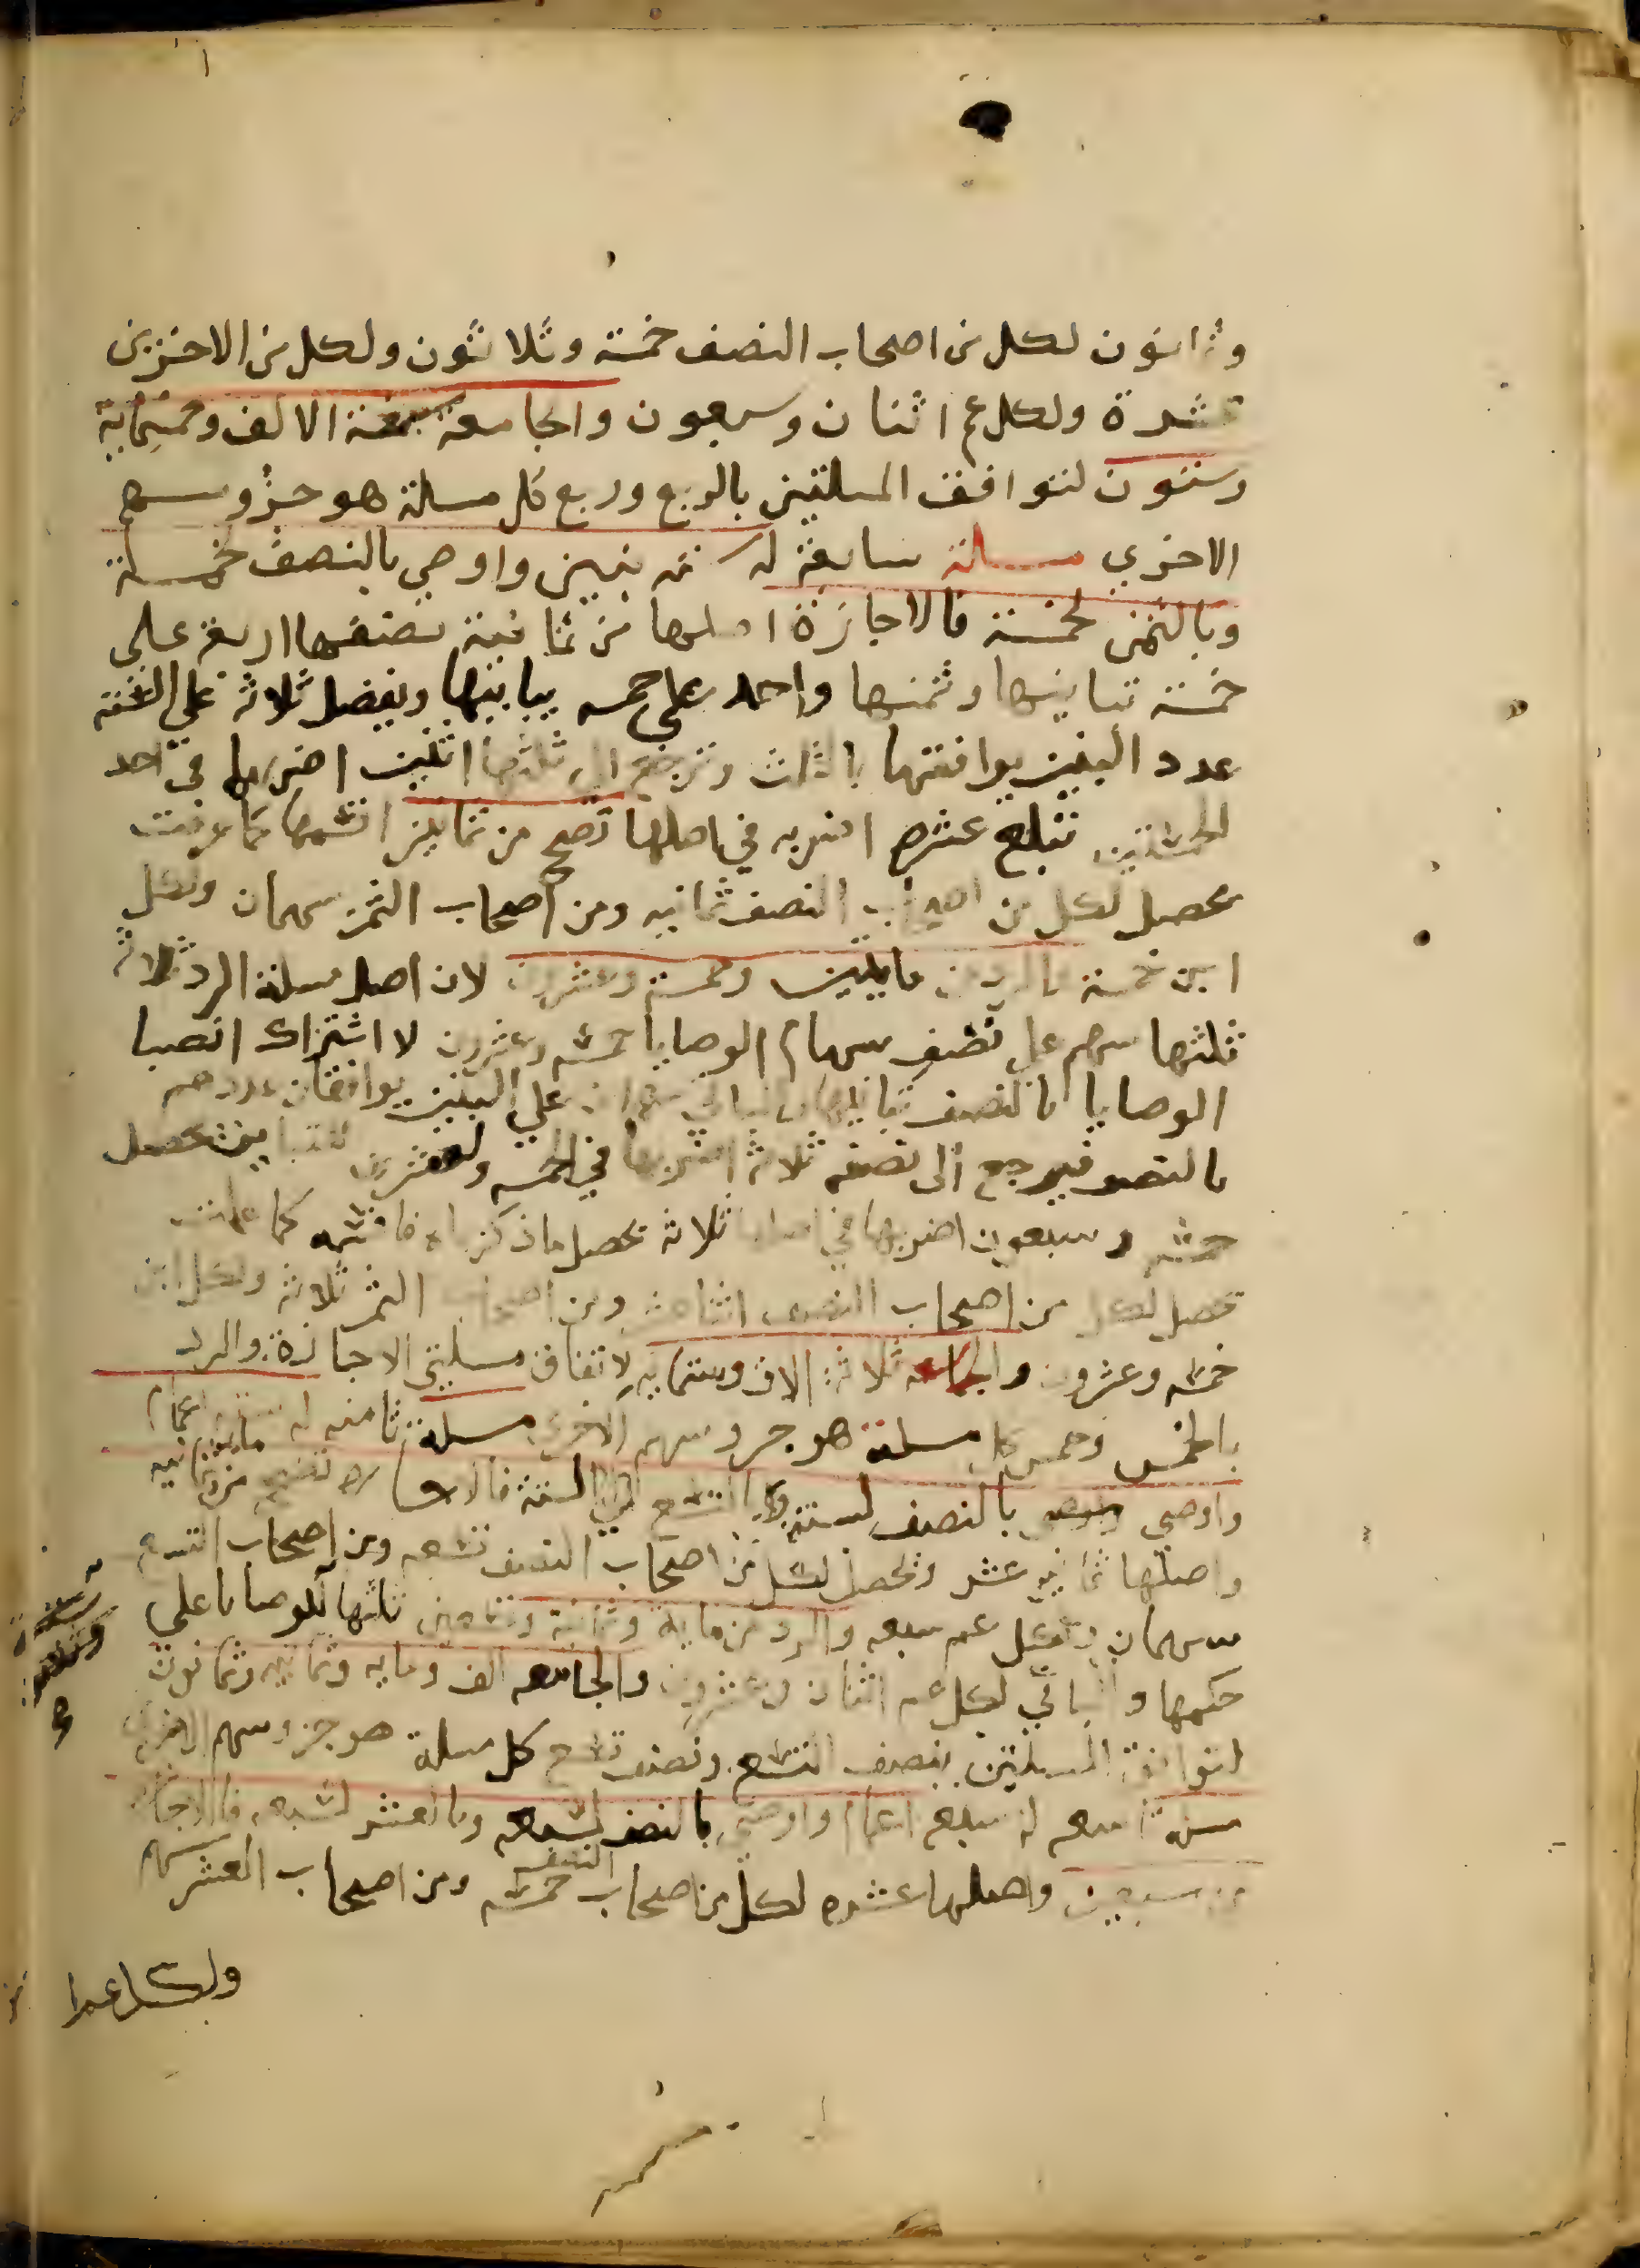 وثمانون لكل من اصحاب النصف خمسة وثلاثون ولكل من الاخرين
عشرة ولكل عم اثنان وسبعون والجامعة سبعة الالف وخمسماية
وستون لتوافق المسلتين بالربع وربع كل مسلة هو جزؤ سهم
الاخري مسلة سابعة له ستة بنين واوصي بالنصف لخمسة
وبالثمن لخمسة فالاجازة اصلها من ثمانية نصفها اربعة علي
خمسة تباينها وثمنها واحد علي خمسه يباينها ويفضل ثلاثة علي الستة
عدد البنين يوافقها بالثلث وترجع الي ثلثها اثنين اضربها في احد
الخمستين تبلغ عشرة اضربه في اصلها تصح من ثمانين اقسمها كما عرفت
يحصل لكل من اصحاب النصف ثمانيه ومن اصحاب الثمن سهمان ولكل
ابن خمسة والرد من مايتين وخمسة وعشرين لان اصل مسلة الرد ثلاثة
ثلثها سهم علي نصف سهام الوصايا خمسه وعشرون لاشتراك انصبا
الوصايا بالنصف تباينها والباقي سهمان علي البنين يوافقان عددهم
بالنصف فيرجع الي نصفه ثلاثة اضربها في الخمسه والعشرين لتباينها يحصل
خمسه وسبعون اضربها في اصلها ثلاثة تحصل ما ذكرناه فاقسمه كما علمت
تحصل لكل من اصحاب النصف اثنا عشر ومن اصحاب الثمن ثلاثة ولكل ابن
خمسه وعشرون والجامعه ثلاثة الاف وستمايه لاتفاق مسلتي الاجازة والرد
بالخمس وخمس كل مسلة هو جزو سهم الاخري مسلة ثامنه له ستة اعمام
واوصي بالنصف لستة وبالتسع الي الستة فالاجازه تصح من مايه وثمانيه
واصلها ثمانيه عشر ويحصل لكل من اصحاب النصف تسعه ومن اصحاب التسع
سهمان ولكل عم سبعه والرد من ماية وثمانية وتسعين ثلثها للوصايا علي
حكمها والباقي لكل عم اثنان وعشرون والجامعه الف ومايه وثمانيه وثمانون
لتوافق المسلتين بنصف التسع ونصف تسع كل مسلة هو جزو سهم الاخري
مسلة تاسعه له سبعة اعمام واوصي بالنصف لسبعه وبالعشر لسبعه فالاجازة
من سبعين واصلها عشره لكل من اصحاب النصف خمسه ومن اصحاب العشر سهم
ولكل عم